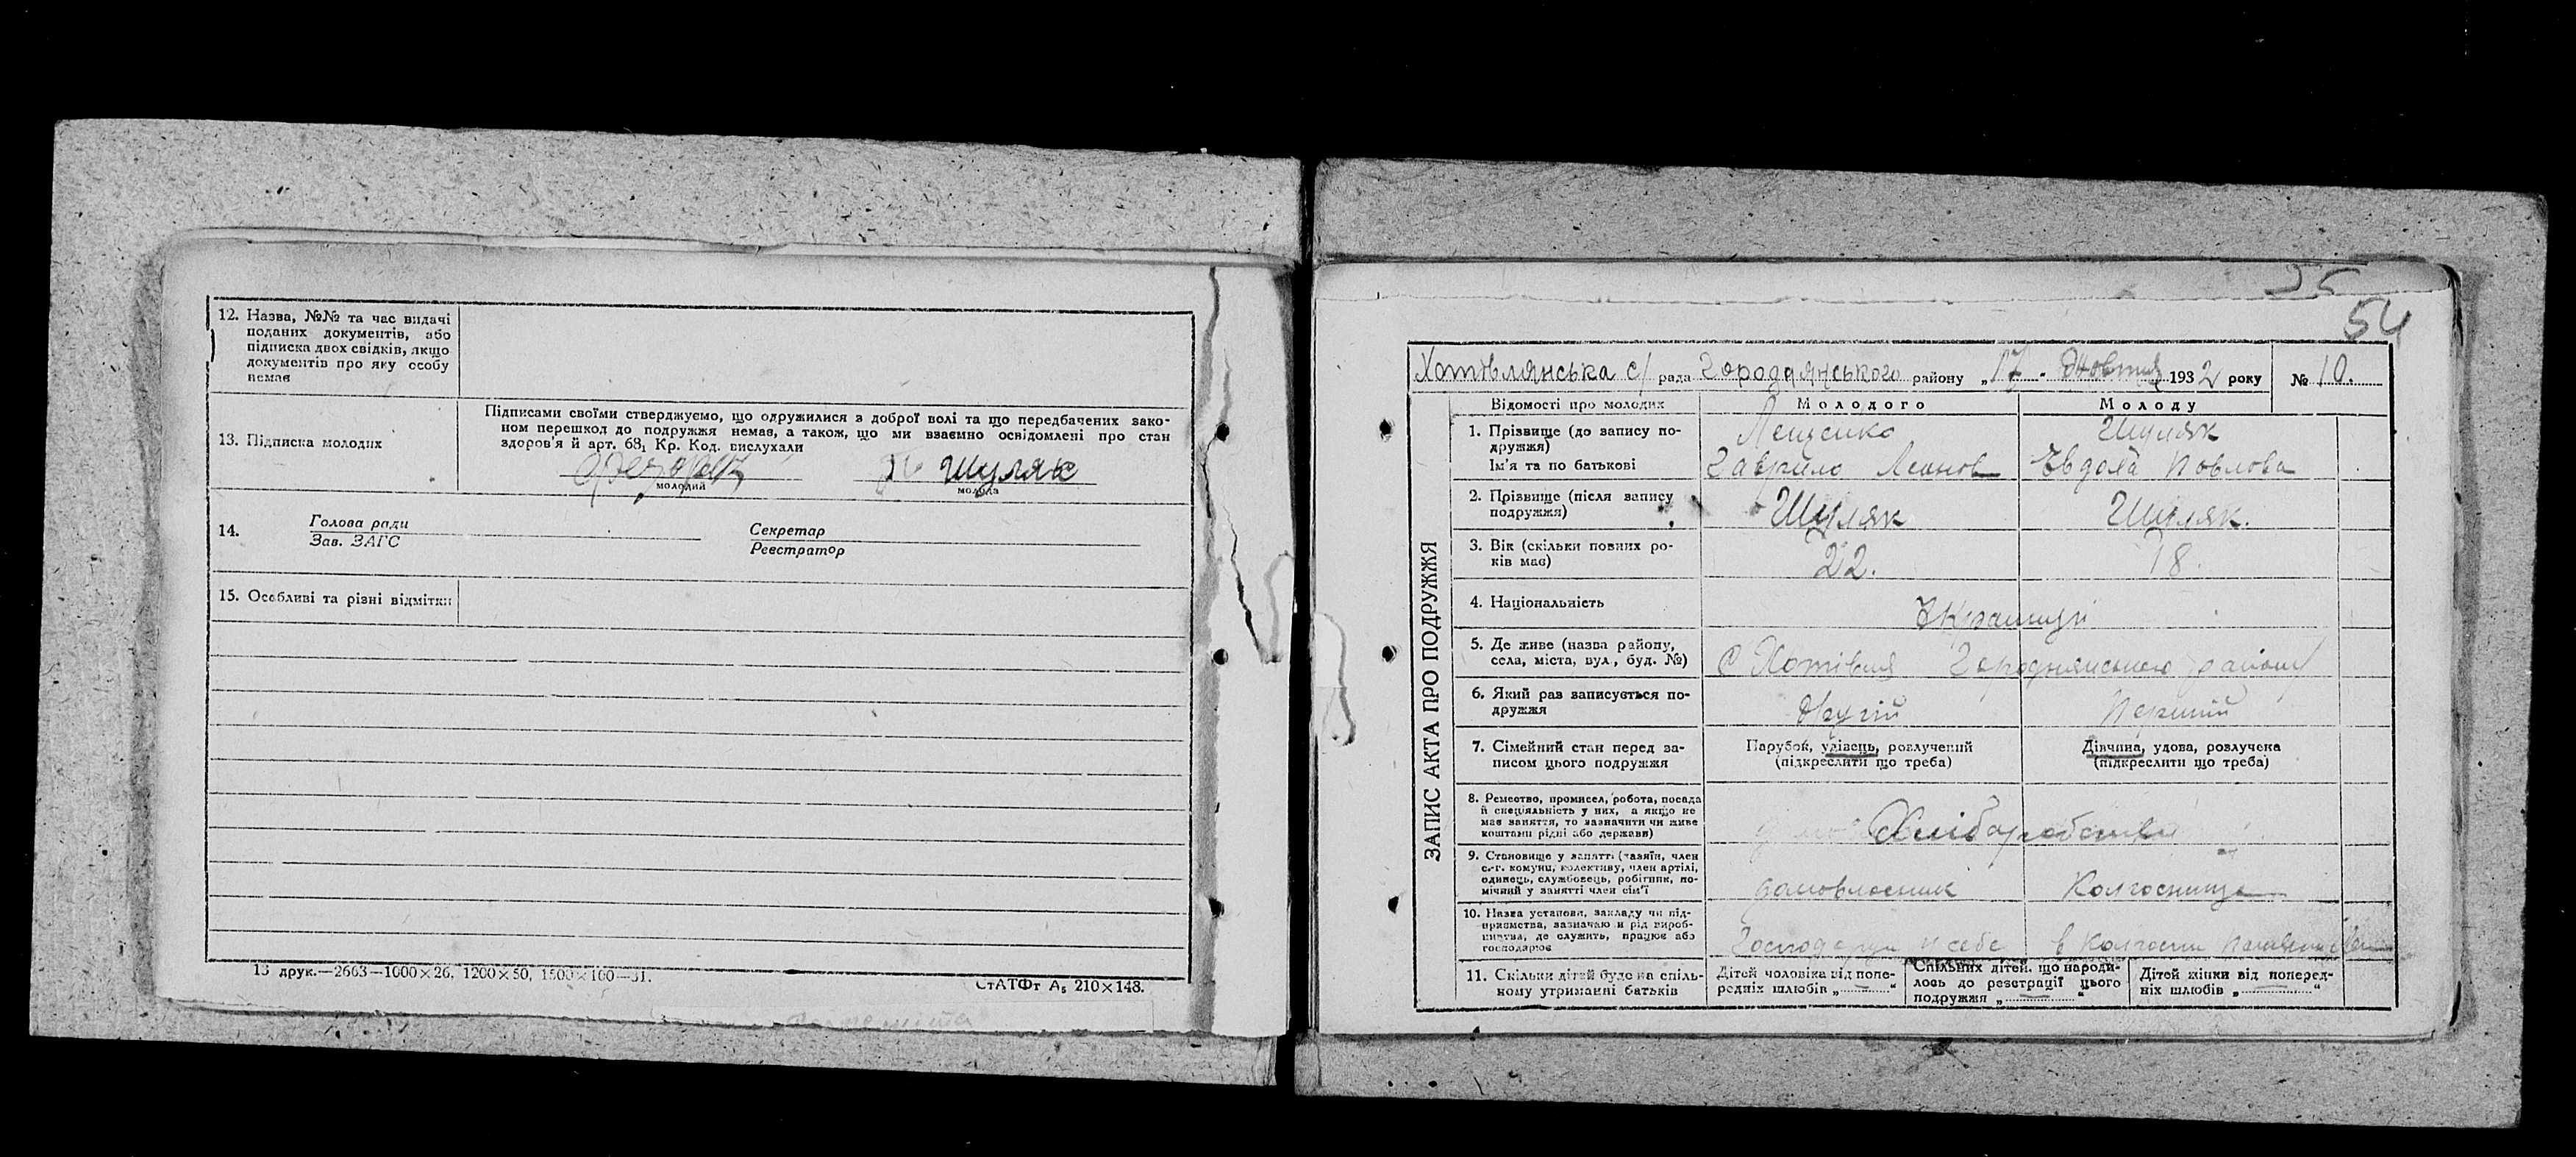 12. Назва, №№ та час видачі
поданих документів, або
підписка двох свідків, якщо
документів про яку особу
немає
13. Підписка молодих
Підписами своїми стверджуємо, що одружилися з доброї волі та що передбачених зако-
ном перешкод до подружжя немає, а також, що ми взаємно освідомлені про стан
здоров'я й арт. 68, Кр. Код. вислухали
Шуляк
молодий
молода
14.
Голова ради
Зав. ЗАГС
Секретар
Реєстратор
15. Особливі та різні відмітки
13 друк.—2663—1000×26, 1200×50, 1500×100—31.
СтАТФт А₅ 210×148.
55
54
ЗАПИС АКТА ПРО ПОДРУЖЖЯ
Хотівлянська с/ рада Городнянського району „17" Жовтня 1932 року № 10.
Відомості про молодих
Молодого
Молоду
1. Прізвище (до запису по-
дружжя)
Лещенко
Шуляк
Ім'я та по батькові
Гаврило Леонов
Евдока Повлова
2. Прізвище (після запису
подружжя)
Шуляк
Шуляк.
3. Вік (скільки повних ро-
ків має)
22.
18.
4. Національність
Украинци
5. Де живе (назва району,
села, міста, вул., буд. №)
с Хотівля Городнянського району
6. Який раз записується по-
дружжя
Другій
Перший
7. Сімейний стан перед за-
писом цього подружжя
Парубок, удівець, розлучений
(підкреслити що треба)
Дівчина, удова, розлучена
(підкреслити що треба)
8. Ремество, промисел, робота, посада
й спеціяльність у них, а якщо не
має заняття, то зазначити чи живе
коштами рідні або держави)
Хліборобство
9. Становище у занятті (хазяїн, член
с.-г. комуни, колективу, член артілі,
одинець, службовець, робітник, по-
мічний у занятті член сім'ї
домовласник
Колгосница
10. Назва установи, закладу чи під-
приємства, зазначаю й рід вироб-
ництва, де служить, працює або
господарює
Господарує у себе
в колгоспи
11. Скільки дітей буде на спіль-
ному утриманні батьків
Дітей чоловіка від попе-
редніх шлюбів „ — "
Спільних дітей, що народи-
лось до реєстрації цього
подружжя „ — "
Дітей жінки від поперед-
ніх шлюбів „ — "